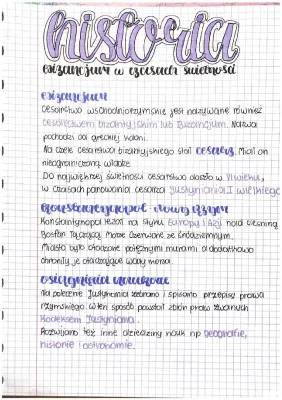 historia
bizancjum w czasach świetności
bizancjum
Cesarstwo wschodniorzymskie jest nazywane również
cesarstwem bizantyjskim lub Bizancjum. Nazwa
pochodzi od greckiej
Na czele cesarstwa bizantyjskiego stał cesarz. Miał on
nieograniczoną władzę.
Do największej świetności cesarstwo doszło w VI wieku,
w czasach panowania cesarza Justyniana I wielkiego
Konstantynopol - nowy Rzym
Konstantynopol leżał na styku Europy i Azji nad cieśniną
Bosfor, łączącą Morze Czarne ze Śródziemnym.
Miasto było otoczone potężnymi murami, a dodatkowo
chroniły je otaczające wody morza.
osiągnięcia naukowe
Na polecenie Justyniana zebrano i spisano przepisy prawa
rzymskiego. W ten sposób powstał zbiór praw zwanych
Kodeksem Justyniana.
Rozwijano też inne dziedziny nauk np geografię,
historię i astronomię.